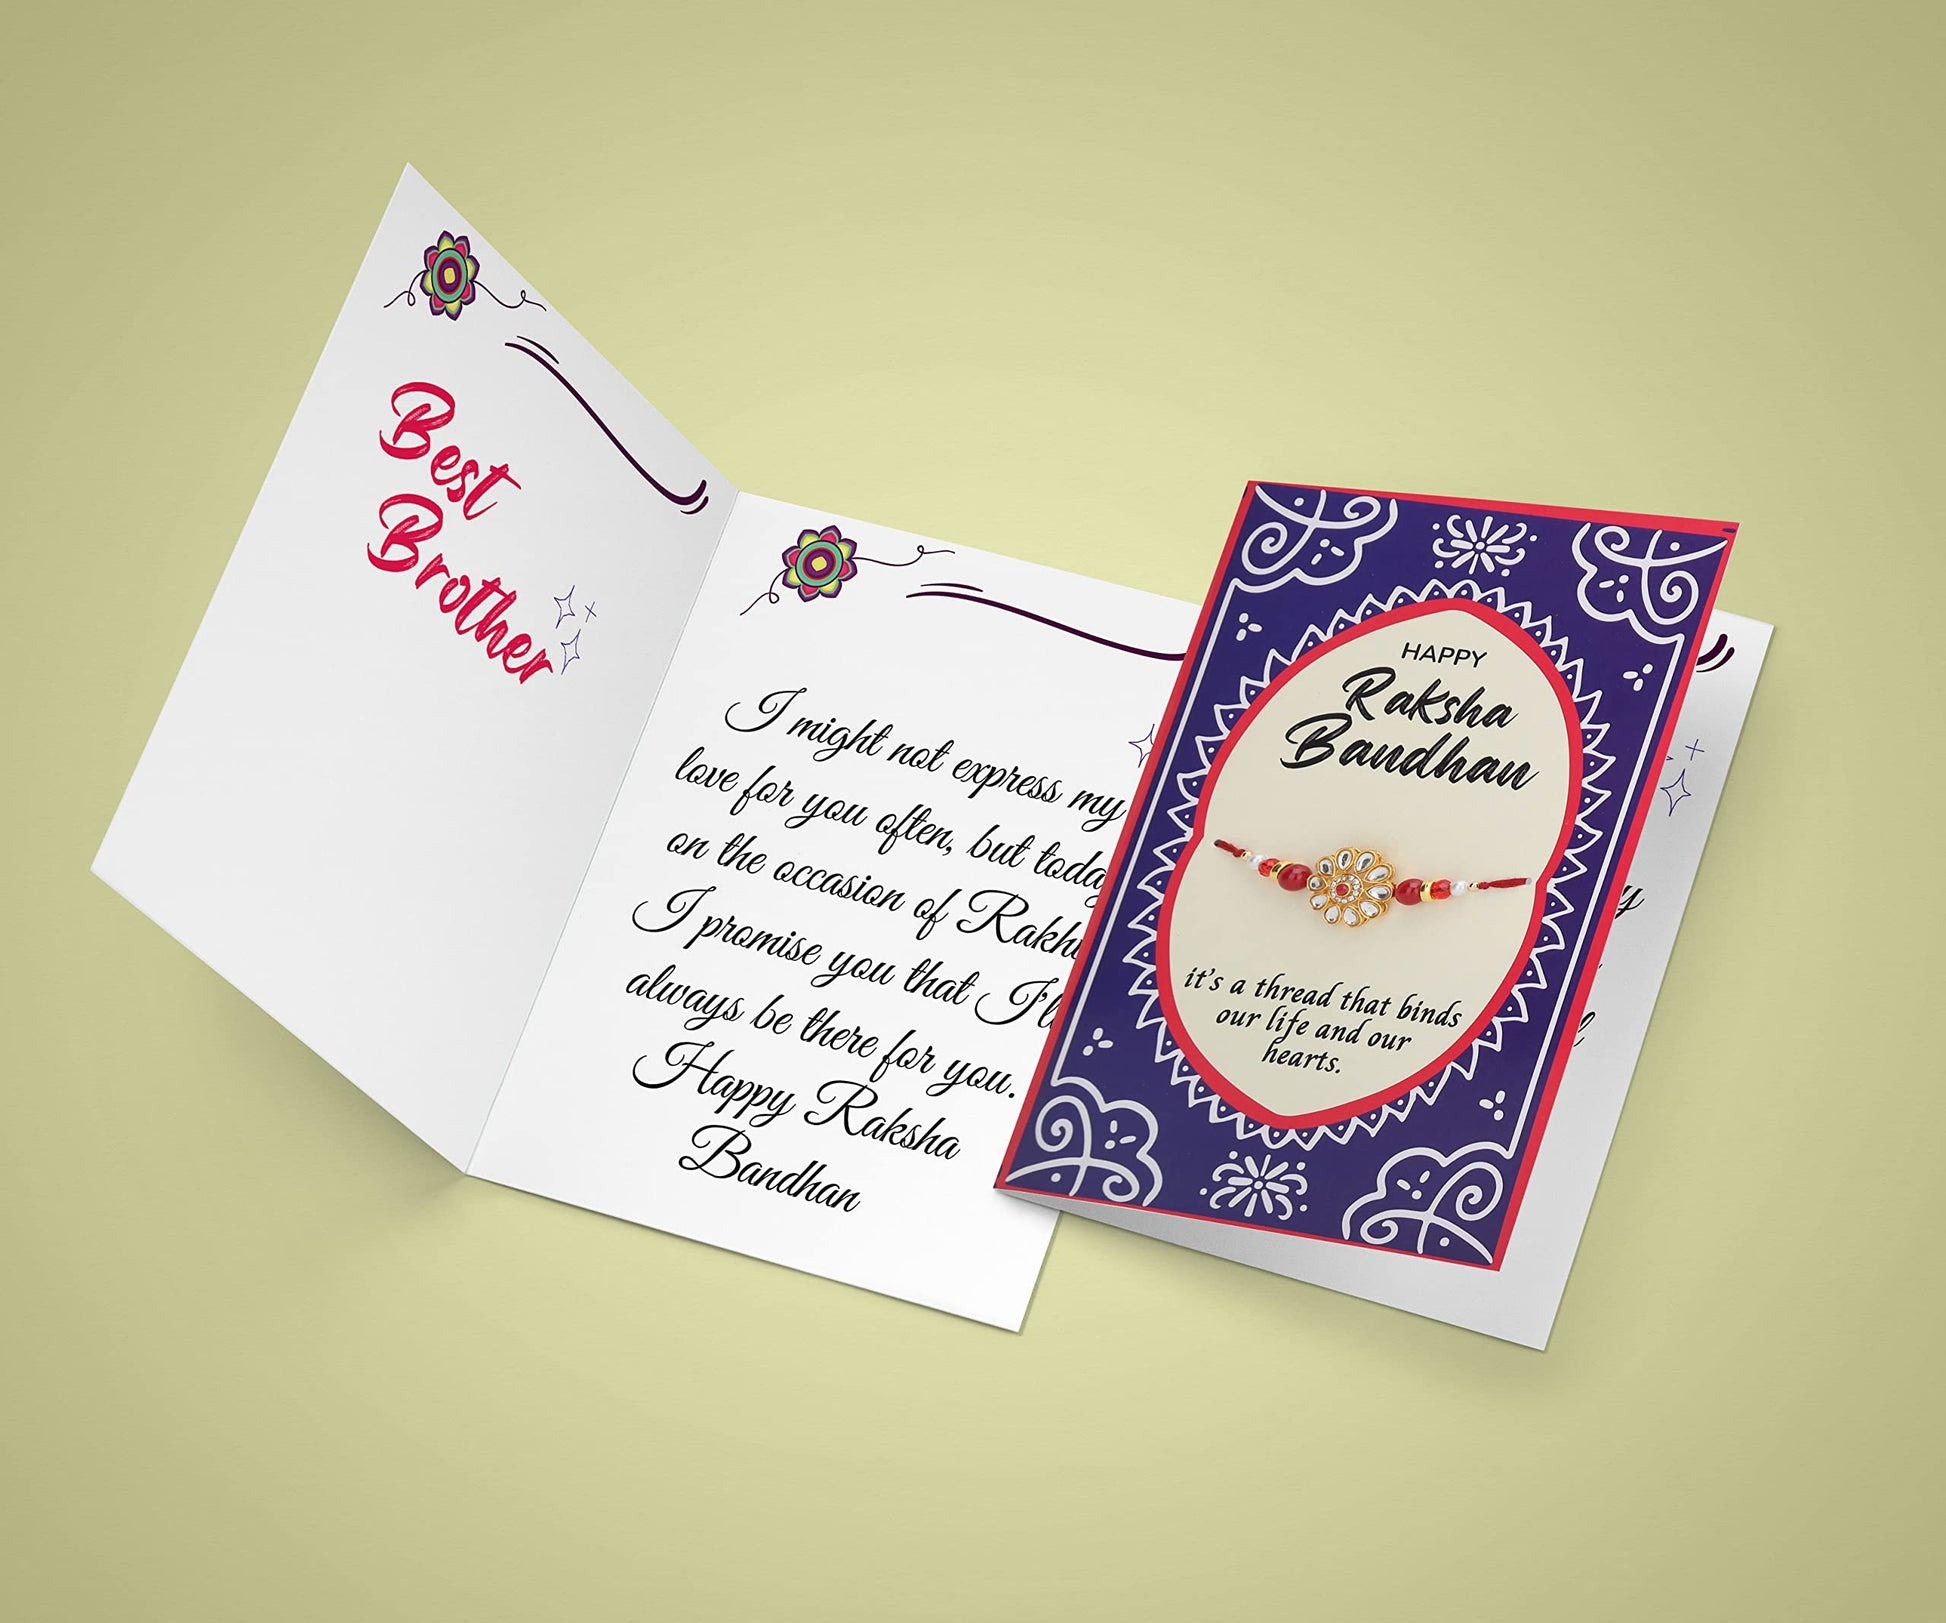 Best
Brother
I might not express my
love for you often, but today
on the occasion of
I promise you that
always be there for you.
Happy Raksha
Bandhan
HAPPY
Raksha
Bandhan
it's a thread that binds
our life and our
hearts.